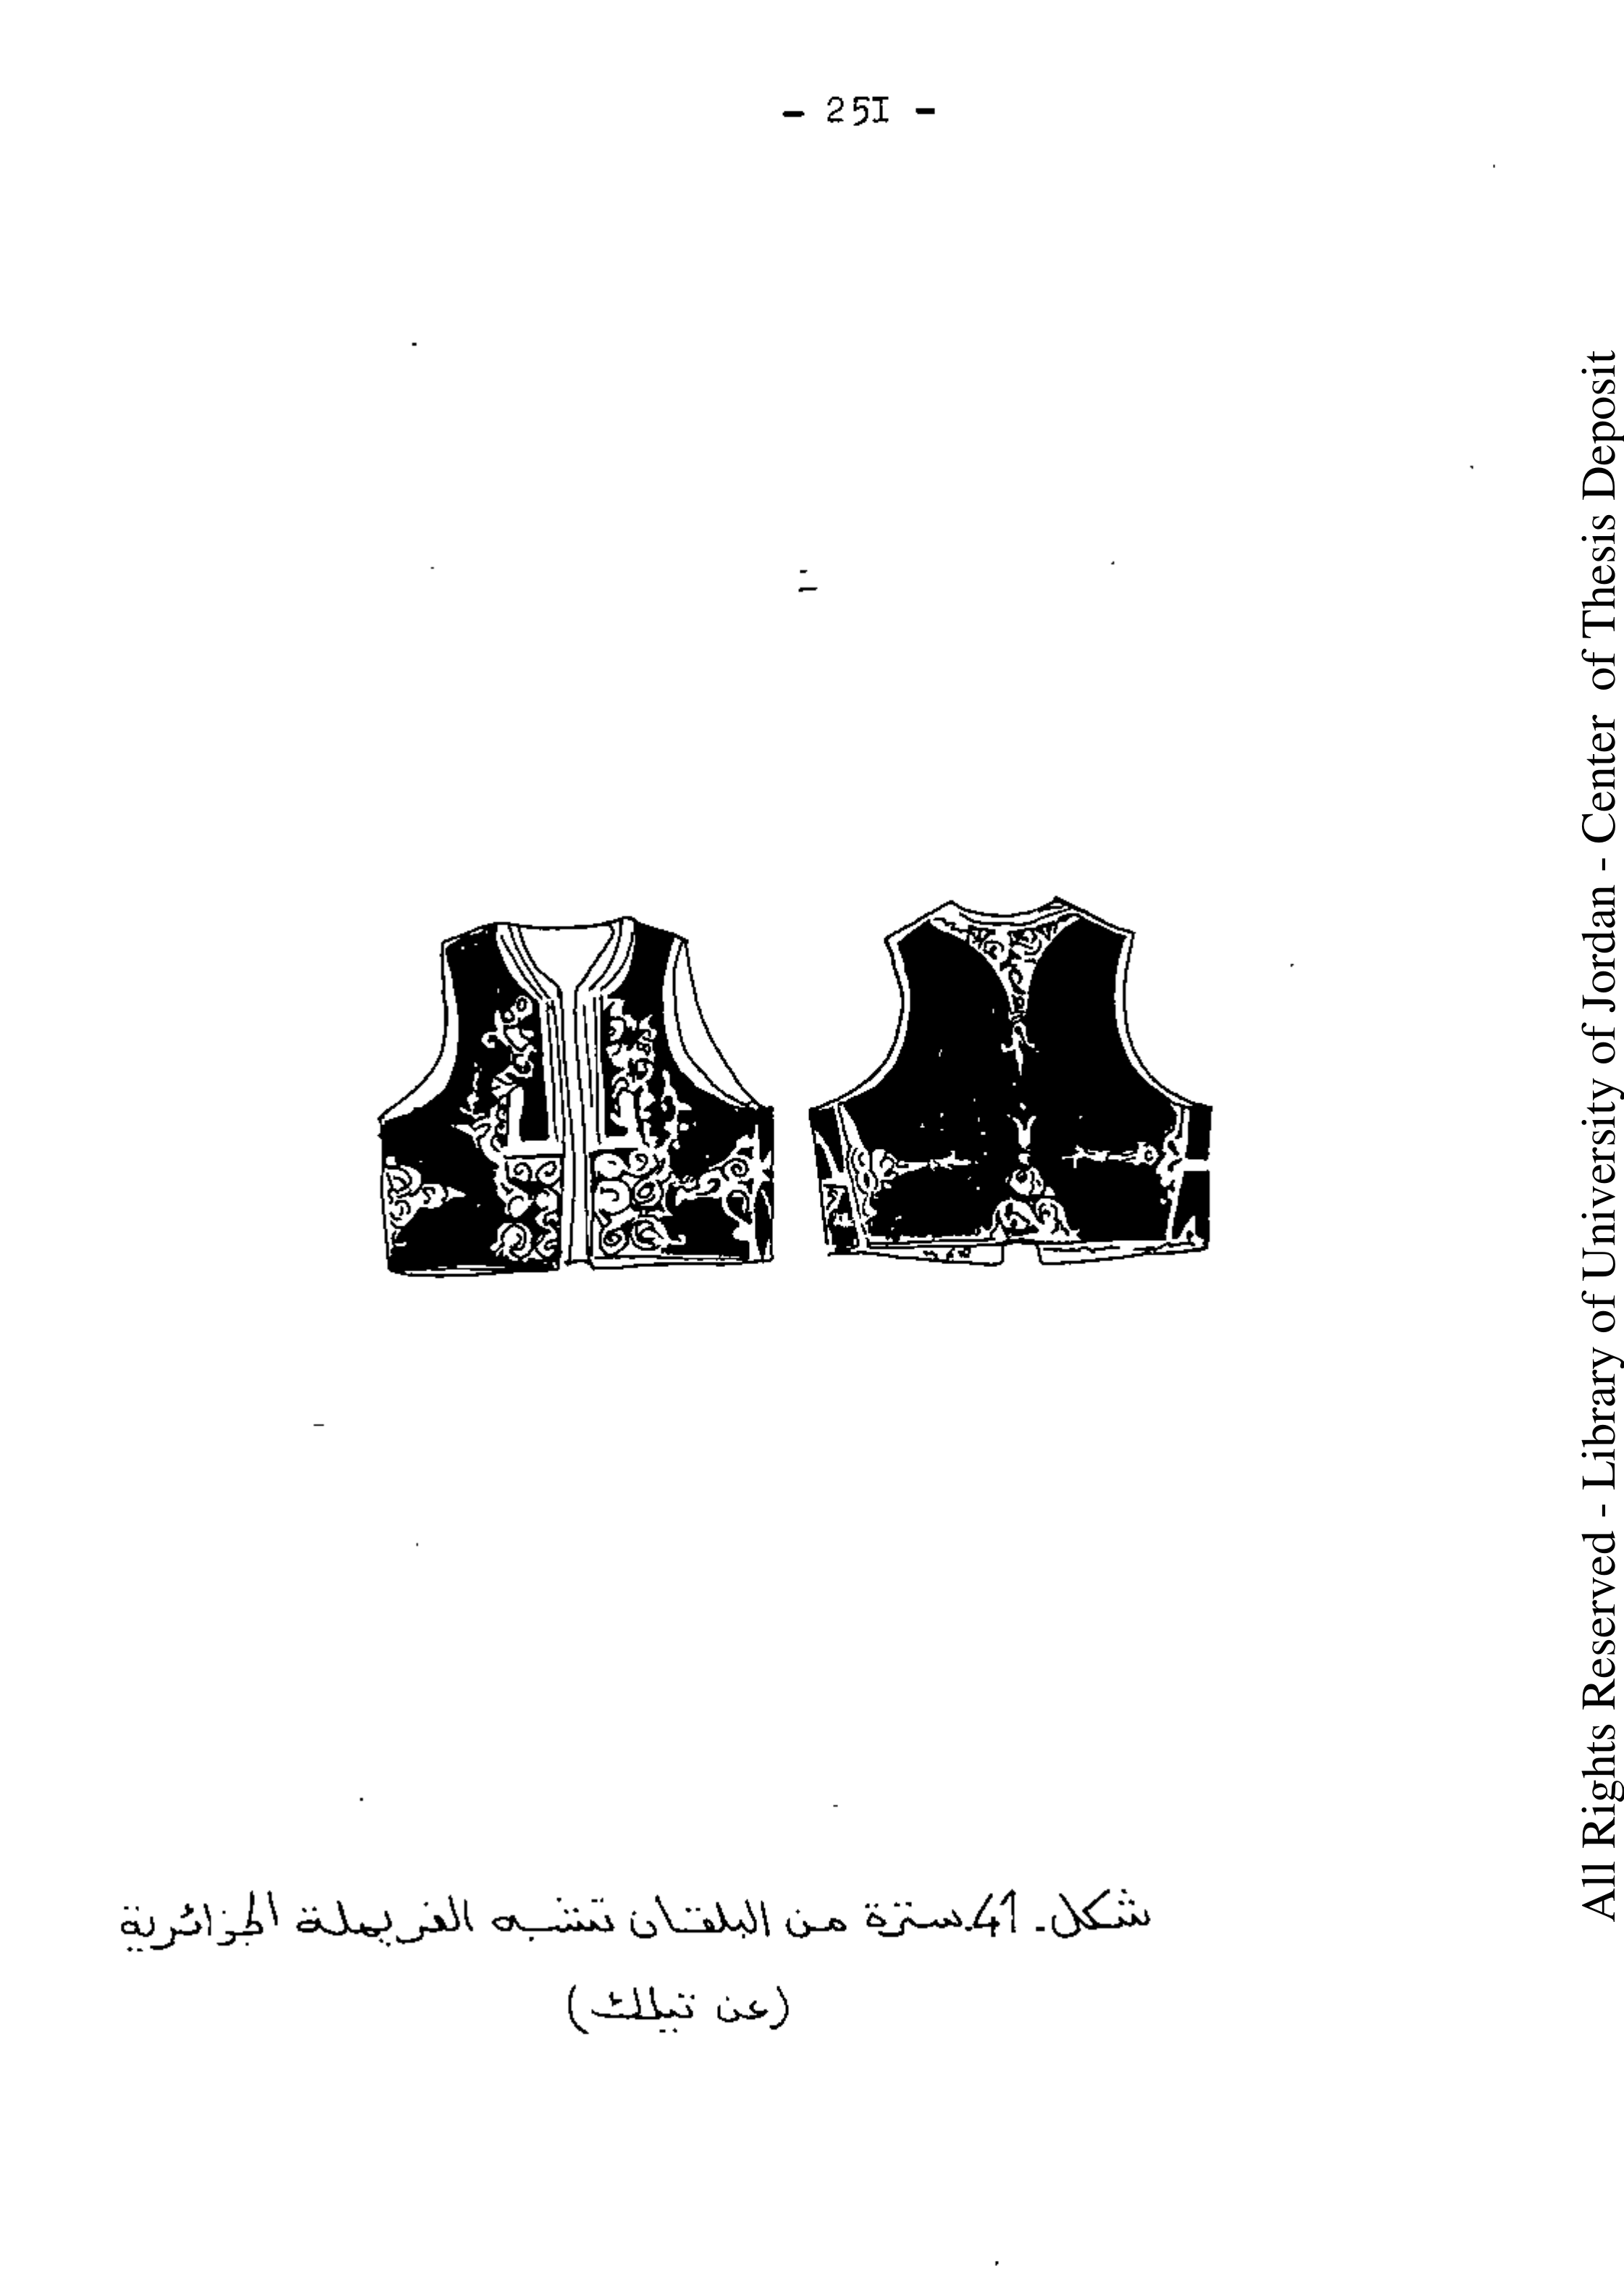 - 25I -
شكل - 41. سترة من البلقان تشبه الفريملة الجزائرية
(عن تيلك)
All Rights Reserved - Library of University of Jordan - Center of Thesis Deposit